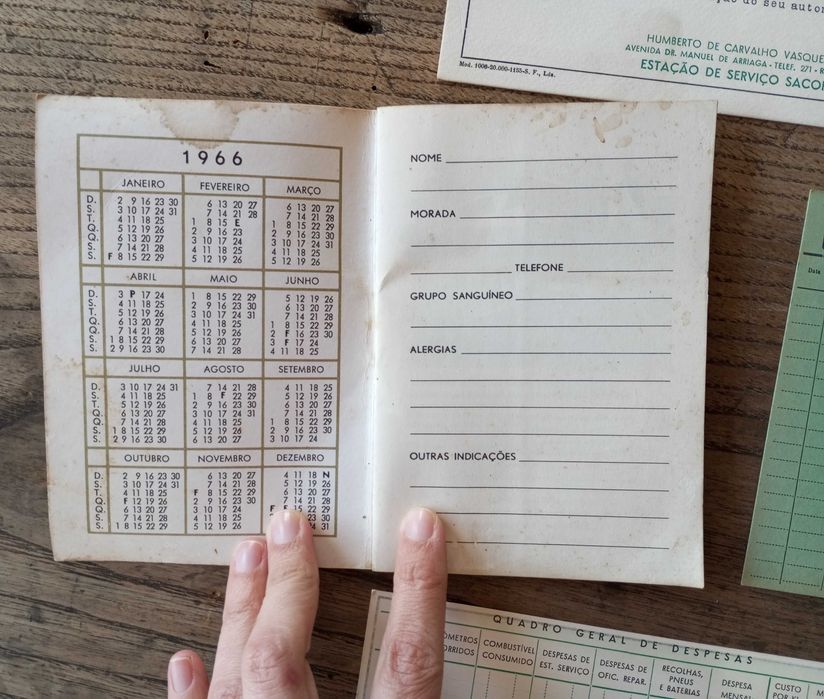 ção do seu autom
HUMBERTO DE CARVALHO VASQUE
AVENIDA DR. MANUEL DE ARRIAGA - TELEF. 271 - R
ESTAÇÃO DE SERVIÇO SACO
Mod. 1006-20.000-1155-S. F., Lda.
1966
JANEIRO FEVEREIRO MARÇO
D. 2 9 16 23 30 6 13 20 27 6 13 20 27
S. 3 10 17 24 31 7 14 21 28 7 14 21 28
T. 4 11 18 25 1 8 15 E 1 8 15 22 29
Q. 5 12 19 26 2 9 16 23 2 9 16 23 30
Q. 6 13 20 27 3 10 17 24 3 10 17 24 31
S. 7 14 21 28 4 11 18 25 4 11 18 25
S. F 8 15 22 29 5 12 19 26 5 12 19 26
ABRIL MAIO JUNHO
D. 3 P 17 24 1 8 15 22 29 5 12 19 26
S. 4 11 18 25 2 9 16 23 30 6 13 20 27
T. 5 12 19 26 3 10 17 24 31 7 14 21 28
Q. 6 13 20 27 4 11 18 25 1 8 15 22 29
Q. 7 14 21 28 5 12 19 26 2 F 16 23 30
S. 1 8 15 22 29 6 13 20 27 3 F 17 24
S. 2 9 16 23 30 7 14 21 28 4 11 18 25
JULHO AGOSTO SETEMBRO
D. 3 10 17 24 31 7 14 21 28 4 11 18 25
S. 4 11 18 25 1 8 F 22 29 5 12 19 26
T. 5 12 19 26 2 9 16 23 30 6 13 20 27
Q. 6 13 20 27 3 10 17 24 31 7 14 21 28
Q. 7 14 21 28 4 11 18 25 1 8 15 22 29
S. 1 8 15 22 29 5 12 19 26 2 9 16 23 30
S. 2 9 16 23 30 6 13 20 27 3 10 17 24
OUTUBRO NOVEMBRO DEZEMBRO
D. 2 9 16 23 30 6 13 20 27 4 11 18 N
S. 3 10 17 24 31 7 14 21 28 5 12 19 26
T. 4 11 18 25 F 8 15 22 29 6 13 20 27
Q. F 12 19 26 2 9 16 23 30 7 14 21 28
Q. 6 13 20 27 3 10 17 24 F F 15 22 29
S. 7 14 21 28 4 11 18 25 23 30
S. 1 8 15 22 29 5 12 19 26 31
NOME
MORADA
TELEFONE
GRUPO SANGUÍNEO
ALERGIAS
OUTRAS INDICAÇÕES
Data
QUADRO GERAL DE DESPESAS
ÓMETROS COMBUSTÍVEL DESPESAS DE DESPESAS DE RECOLHAS, DESPESA CUSTO
ORRIDOS CONSUMIDO EST. SERVIÇO OFIC. REPAR. PNEUS MENSAL POR
E BATERIAS